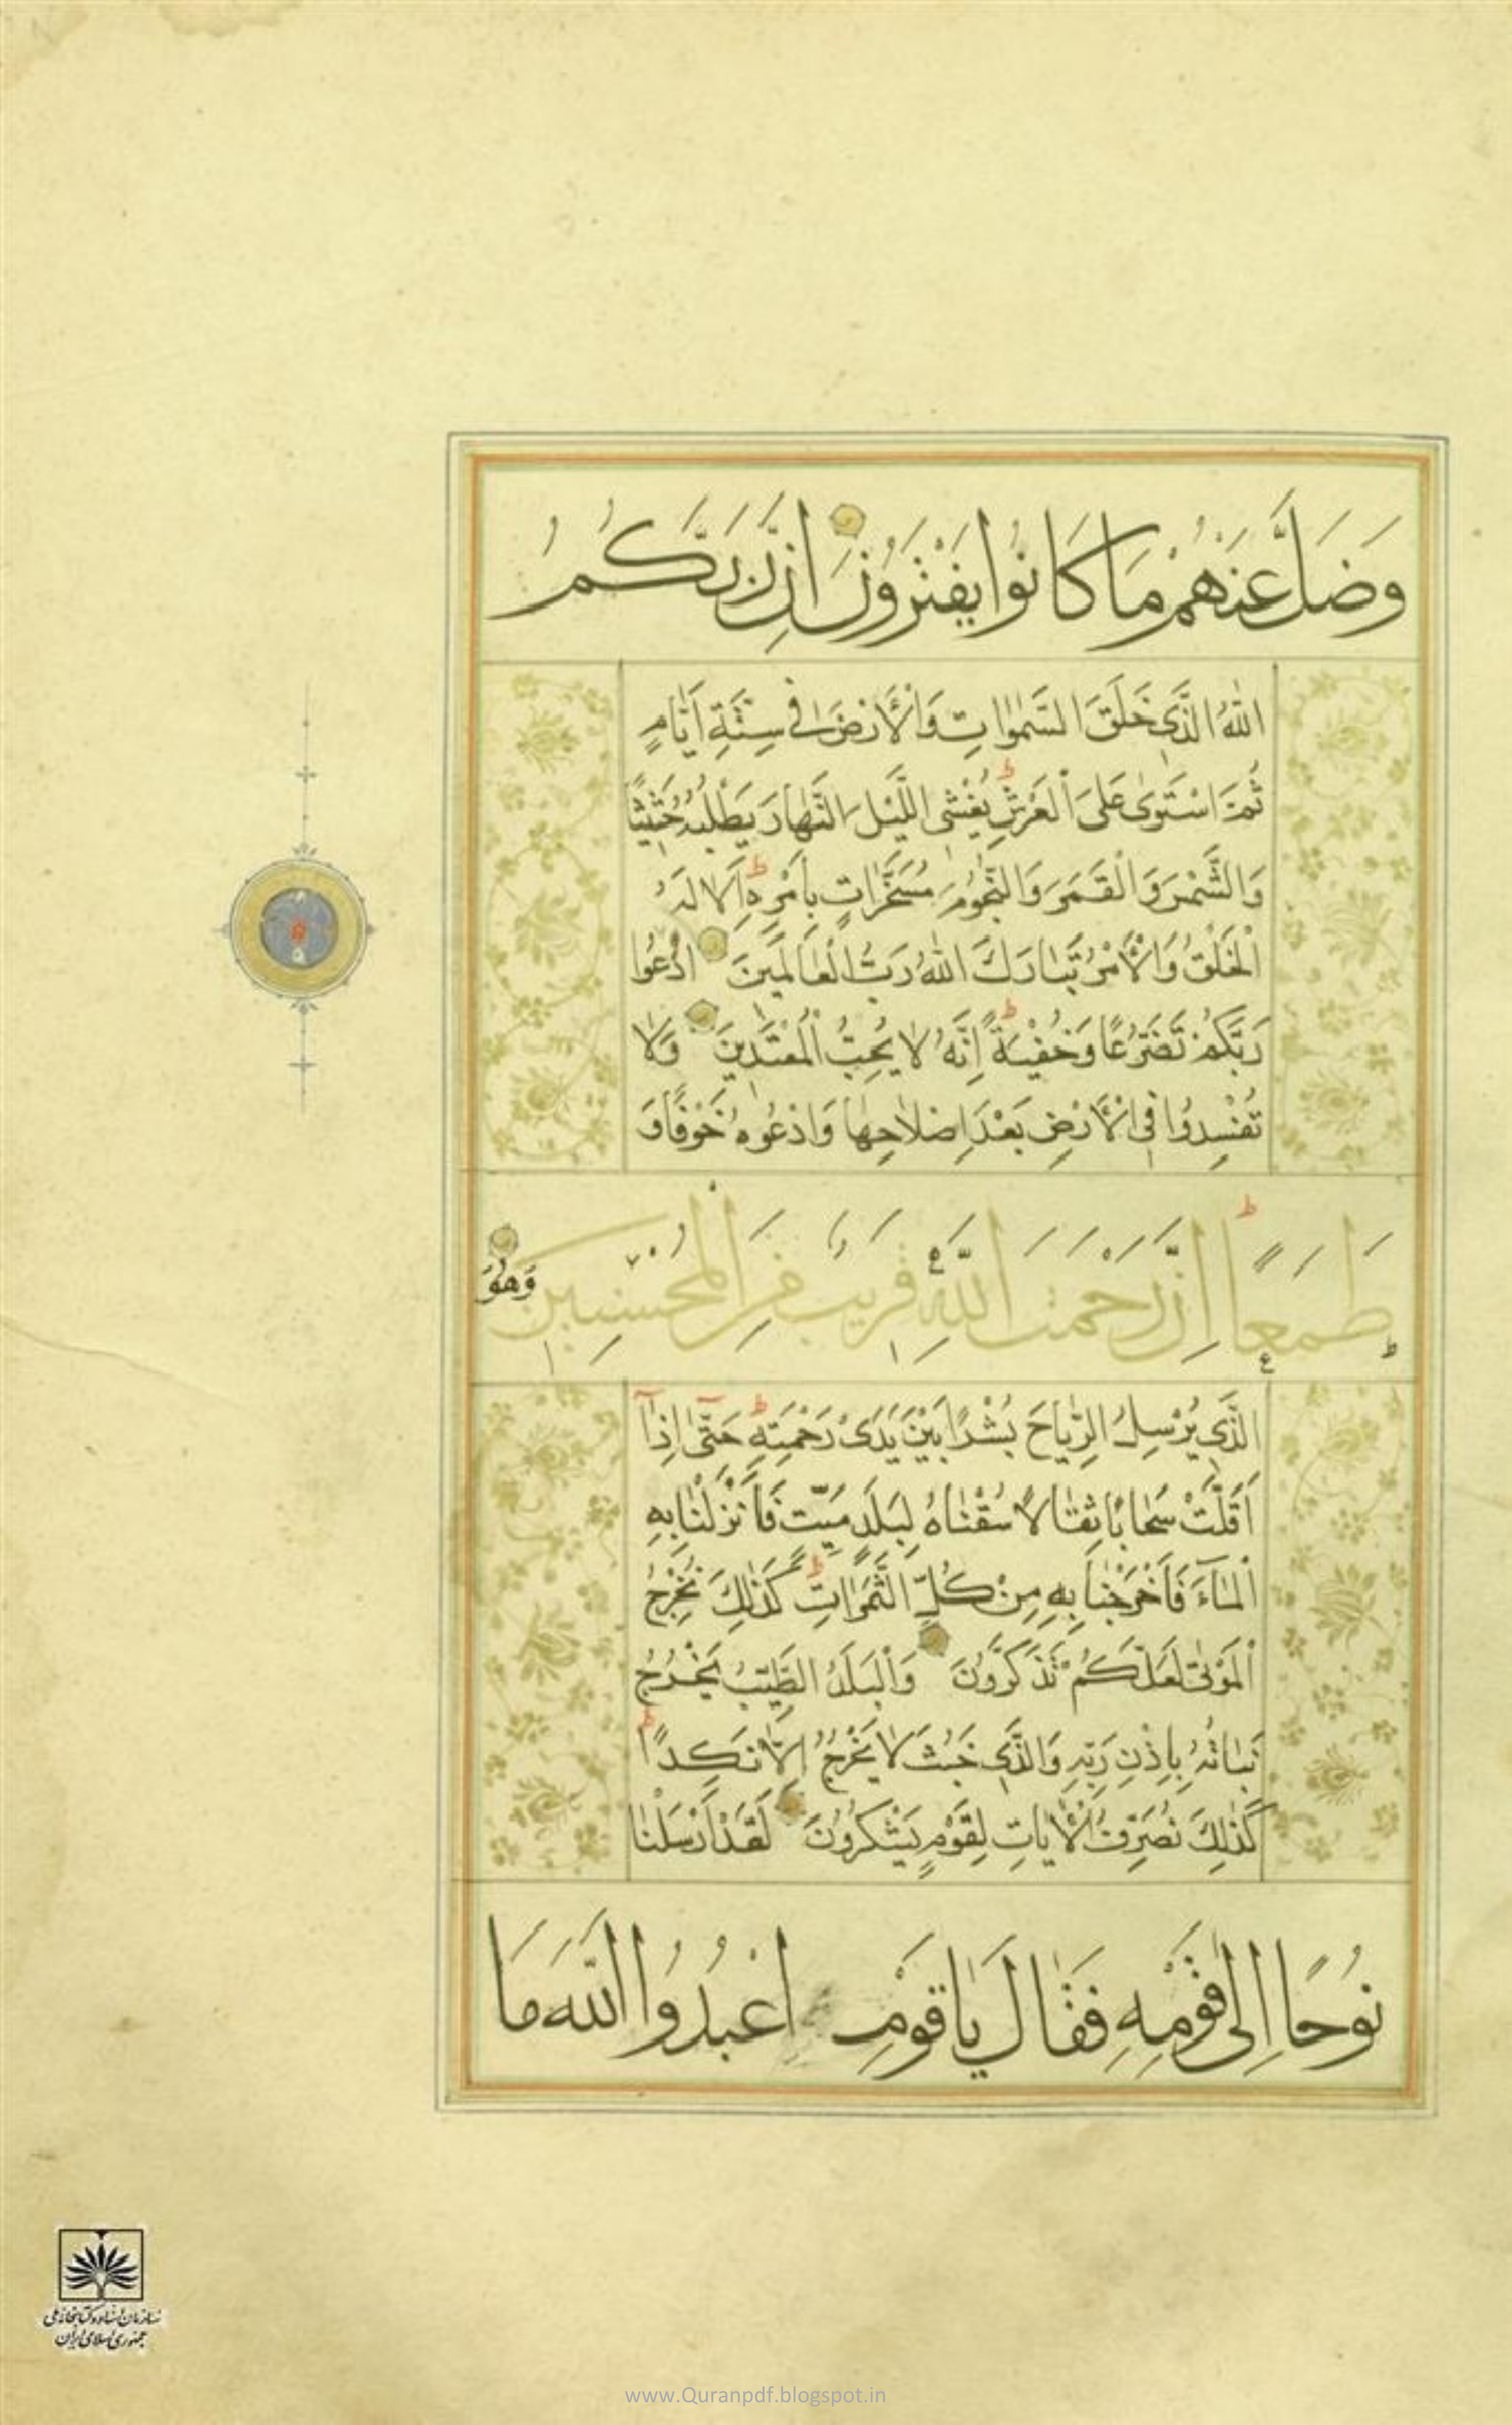 وَضَلَّ عَنْهُمْ مَا كَانُوا يَفْتَرُونَ اِنَّ رَبَّكُمُ
اللّٰهُ الَّذِي خَلَقَ السَّمٰوَاتِ وَالْاَرْضَ فِي سِتَّةِ اَيَّامٍ
ثُمَّ اسْتَوٰى عَلَى الْعَرْشِ يُغْشِي اللَّيْلَ النَّهَارَ يَطْلُبُهُ حَثِيثًا
وَالشَّمْسَ وَالْقَمَرَ وَالنُّجُومَ مُسَخَّرَاتٍ بِاَمْرِهِ اَلَا لَهُ
الْخَلْقُ وَالْاَمْرُ تَبَارَكَ اللّٰهُ رَبُّ الْعَالَمِينَ اُدْعُوا
رَبَّكُمْ تَضَرُّعًا وَخُفْيَةً اِنَّهُ لَا يُحِبُّ الْمُعْتَدِينَ وَلَا
تُفْسِدُوا فِي الْاَرْضِ بَعْدَ اِصْلَاحِهَا وَادْعُوهُ خَوْفًا وَ
طَمَعًا اِنَّ رَحْمَتَ اللّٰهِ قَرِيبٌ مِنَ الْمُحْسِنِينَ وَهُوَ
الَّذِي يُرْسِلُ الرِّيَاحَ بُشْرًا بَيْنَ يَدَيْ رَحْمَتِهِ حَتّٰى اِذَا
اَقَلَّتْ سَحَابًا ثِقَالًا سُقْنَاهُ لِبَلَدٍ مَيِّتٍ فَاَنْزَلْنَا بِهِ
الْمَاءَ فَاَخْرَجْنَا بِهِ مِنْ كُلِّ الثَّمَرَاتِ كَذٰلِكَ نُخْرِجُ
الْمَوْتٰى لَعَلَّكُمْ تَذَكَّرُونَ وَالْبَلَدُ الطَّيِّبُ يَخْرُجُ
نَبَاتُهُ بِاِذْنِ رَبِّهِ وَالَّذِي خَبُثَ لَا يَخْرُجُ اِلَّا نَكِدًا
كَذٰلِكَ نُصَرِّفُ الْاٰيَاتِ لِقَوْمٍ يَشْكُرُونَ لَقَدْ اَرْسَلْنَا
نُوحًا اِلٰى قَوْمِهِ فَقَالَ يَا قَوْمِ اعْبُدُوا اللّٰهَ مَا
سازمان اسناد و کتابخانه ملی
جمهوری اسلامی ایران
www.Quranpdf.blogspot.in